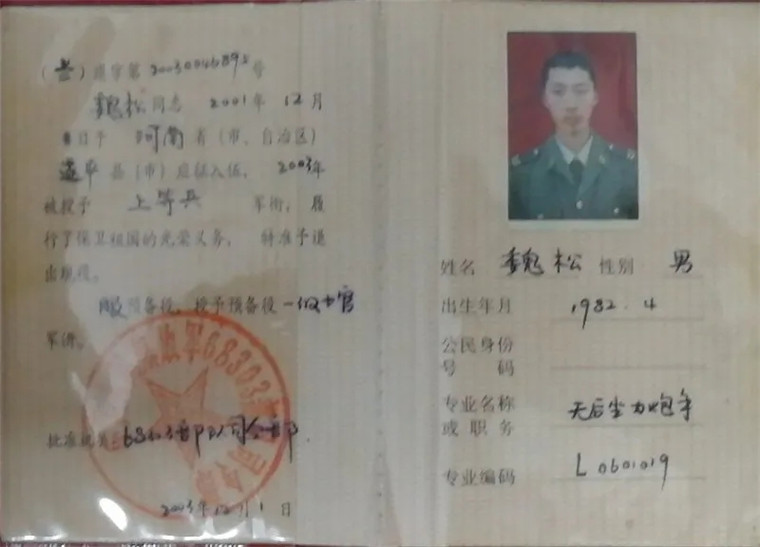 (兰)退字第20030046892号
魏松同志 2001年 12月
日于 河南省(市、自治区)
遂平县(市)应征入伍, 2003年
被授予 上等兵 军衔, 履
行了保卫祖国的光荣义务, 特准予退
出现役。
服预备役, 授予预备役一级士官
军衔。
批准机关:68303部队司令部
2003年12月1日
姓名 魏松 性别 男
出生年月 1982.4
公民身份
号 码
专业名称 无后坐力炮手
或职务
专业编码 L0601019